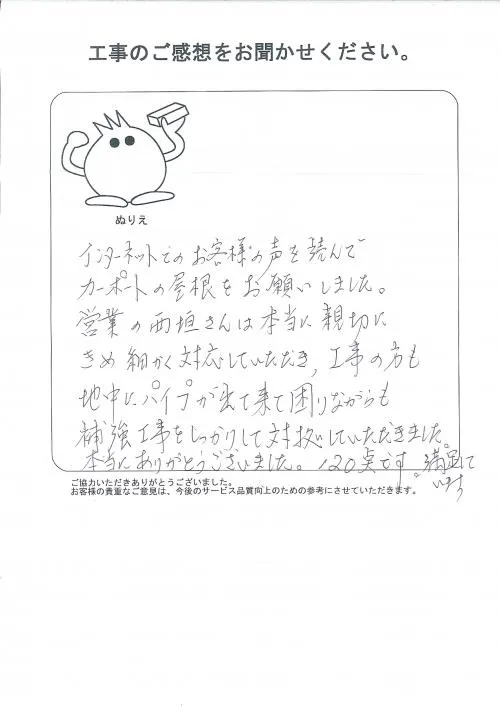 工事のご感想をお聞かせください。
ぬりえ
インターネットでのお客様の声を読んで
カーポートの屋根をお願いしました。
営業の西垣さんは本当に親切に
きめ細かく対応していただき、工事の方も
地中にパイプが出て来て困りながらも
補強工事をしっかりして対処していただきました。
本当にありがとうございました。120点です 満足して
います
ご協力いただきありがとうございました。
お客様の貴重なご意見は、今後のサービス品質向上のための参考にさせていただきます。